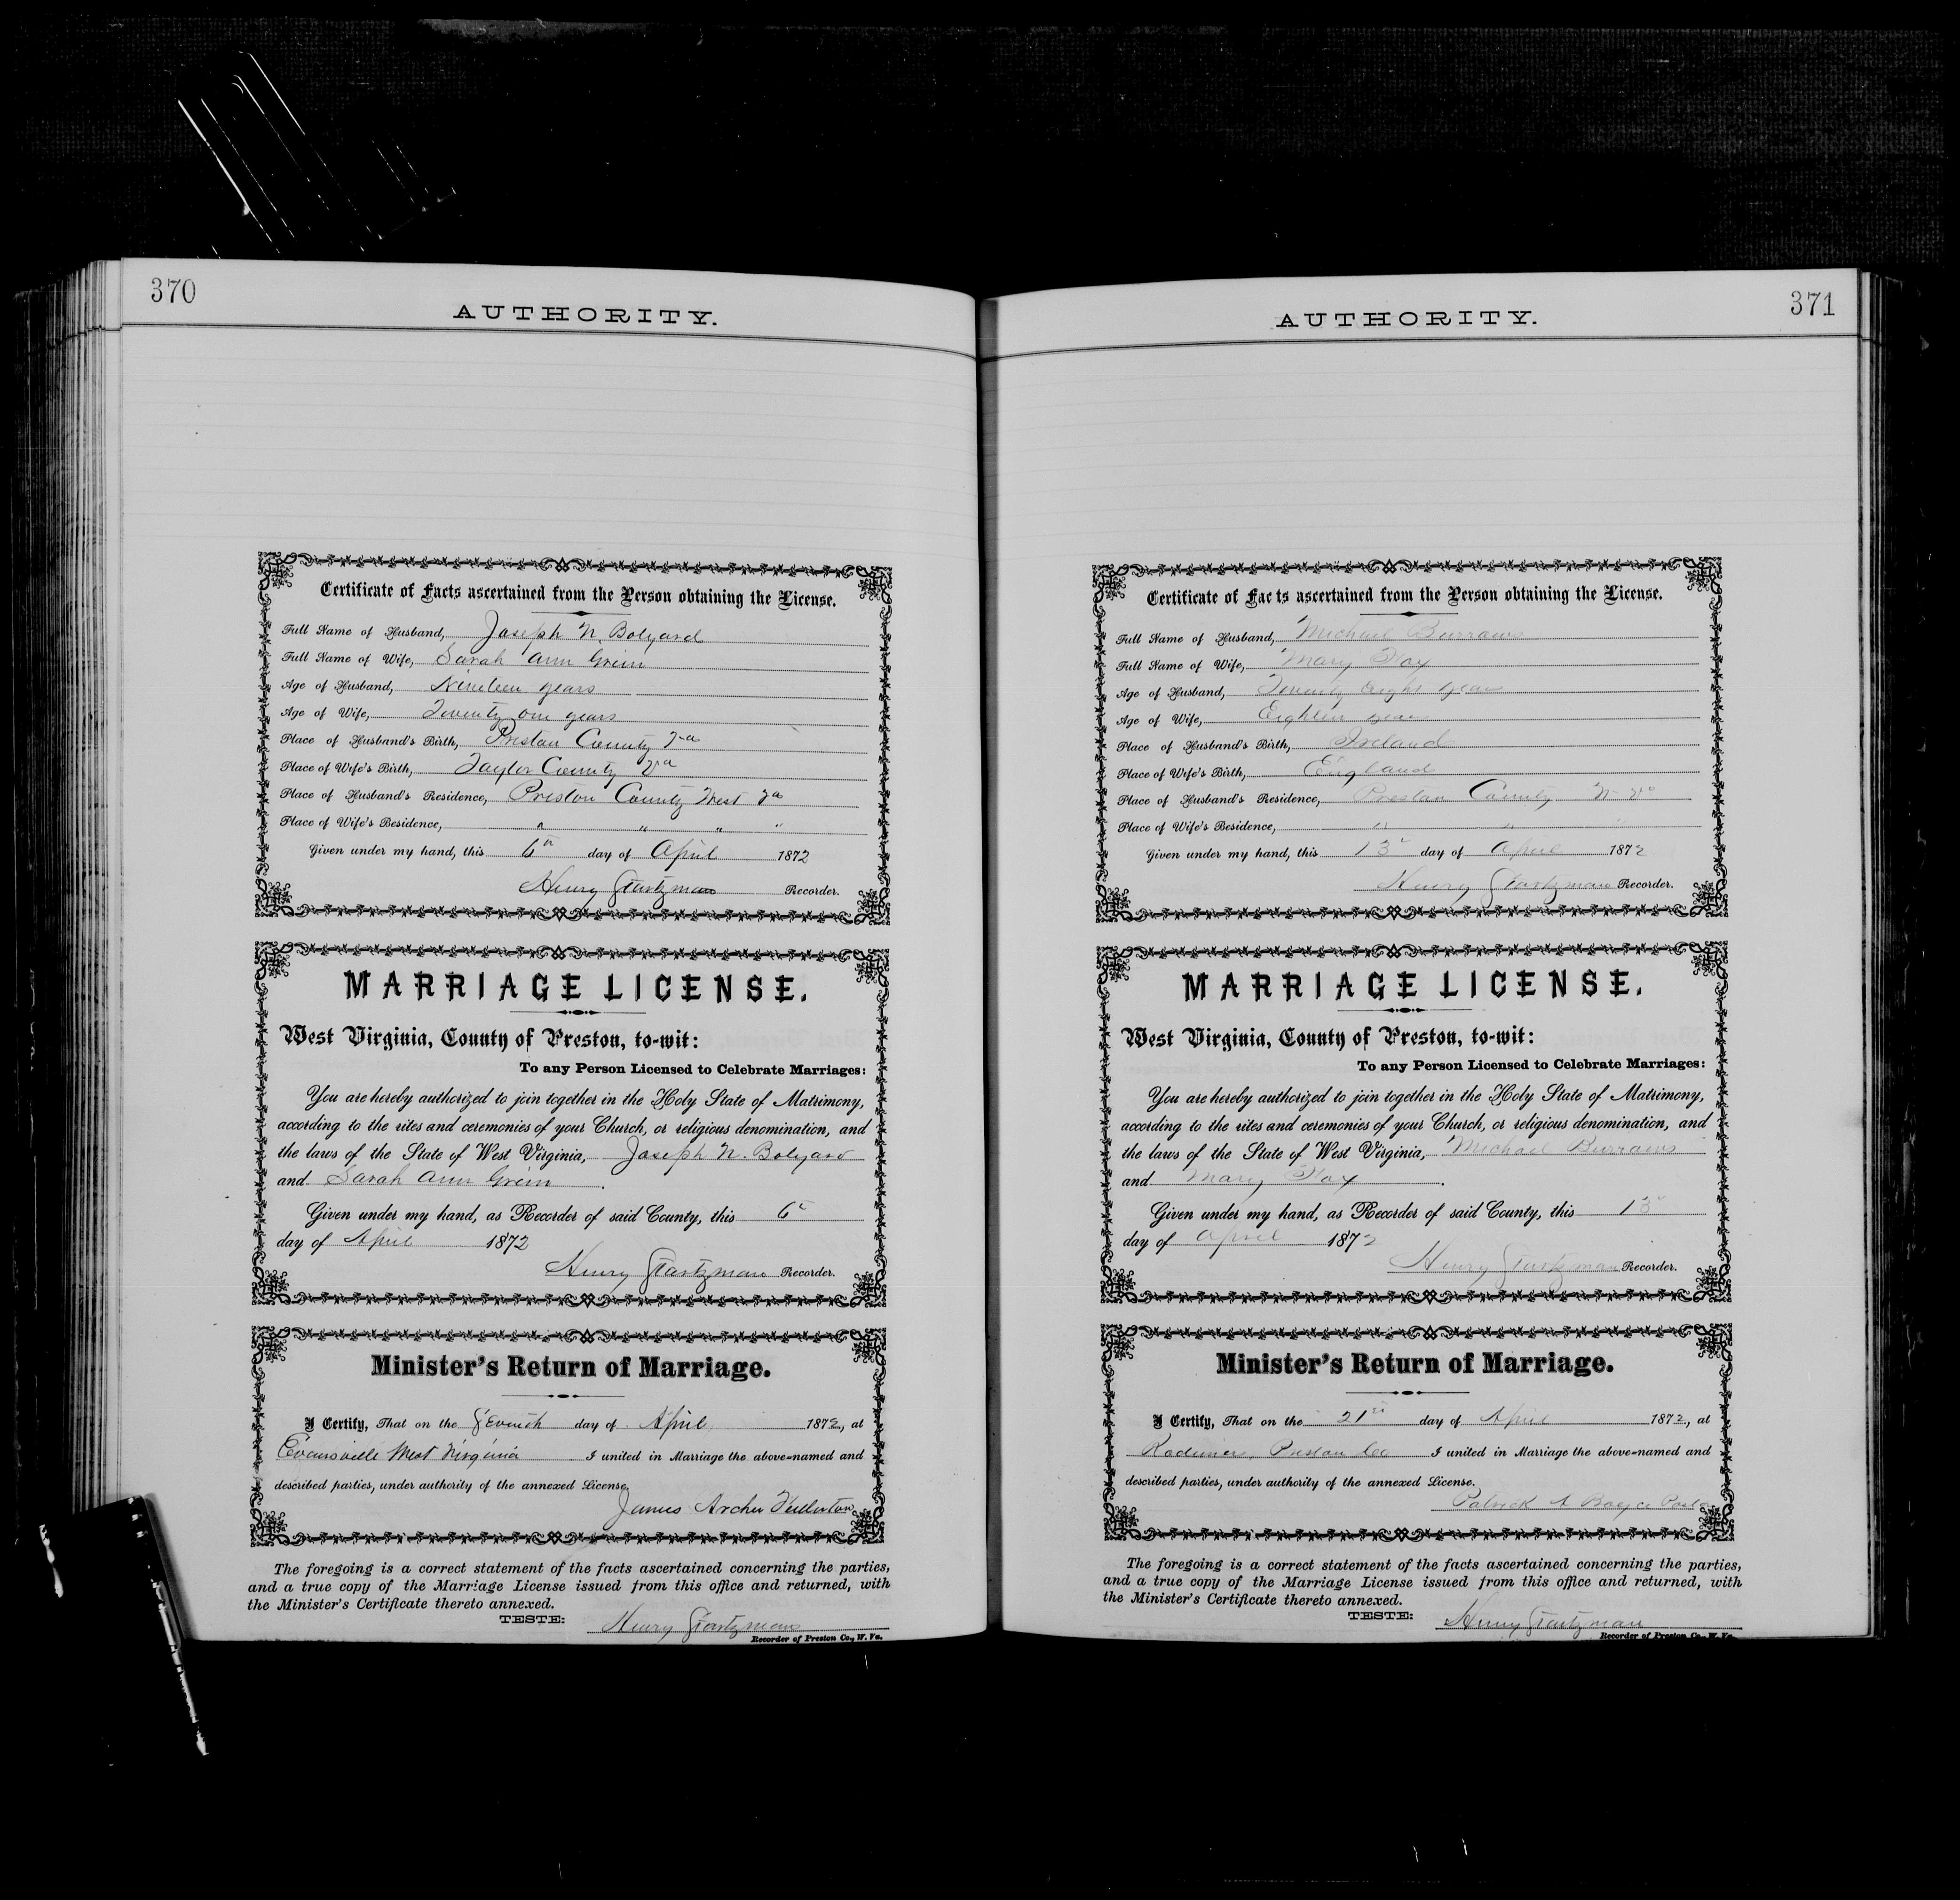 370
AUTHORITY.
Certificate of Facts ascertained from the Person obtaining the License.
Full Name of Husband, Joseph N. Bolyard
Full Name of Wife, Sarah Ann Grim
Age of Husband, Nineteen years
Age of Wife, Twenty one years
Place of Husband's Birth, Preston County Va
Place of Wife's Birth, Taylor County Va
Place of Husband's Residence, Preston County West Va
Place of Wife's Residence, " " " "
Given under my hand, this 6th day of April 1872
Henry Startzman Recorder.
MARRIAGE LICENSE.
West Virginia, County of Preston, to-wit:
To any Person Licensed to Celebrate Marriages:
You are hereby authorized to join together in the Holy State of Matrimony,
according to the rites and ceremonies of your Church, or religious denomination, and
the laws of the State of West Virginia, Joseph N. Bolyard
and Sarah Ann Grim.
Given under my hand, as Recorder of said County, this 6
day of April 1872
Henry Startzman Recorder.
Minister's Return of Marriage.
I Certify, That on the Seventh day of April, 1872, at
Evansville West Virginia I united in Marriage the above-named and
described parties, under authority of the annexed License.
James Archer Fullerton
The foregoing is a correct statement of the facts ascertained concerning the parties,
and a true copy of the Marriage License issued from this office and returned, with
the Minister's Certificate thereto annexed.
TESTE: Henry Startzman
Recorder of Preston Co., W. Va.
371
AUTHORITY.
Certificate of Facts ascertained from the Person obtaining the License.
Full Name of Husband, Michael Burrows
Full Name of Wife, Mary Fox
Age of Husband, Twenty eight years
Age of Wife, Eighteen years
Place of Husband's Birth, Ireland
Place of Wife's Birth, England
Place of Husband's Residence, Preston County W Va
Place of Wife's Residence, " " "
Given under my hand, this 13 day of April 1872
Henry Startzman Recorder.
MARRIAGE LICENSE.
West Virginia, County of Preston, to-wit:
To any Person Licensed to Celebrate Marriages:
You are hereby authorized to join together in the Holy State of Matrimony,
according to the rites and ceremonies of your Church, or religious denomination, and
the laws of the State of West Virginia, Michael Burrows
and Mary Fox.
Given under my hand, as Recorder of said County, this 13
day of April 1872
Henry Startzman Recorder.
Minister's Return of Marriage.
I Certify, That on the 21st day of April 1872, at
Preston Co I united in Marriage the above-named and
described parties, under authority of the annexed License.
Patrick A Boyce Pastor
The foregoing is a correct statement of the facts ascertained concerning the parties,
and a true copy of the Marriage License issued from this office and returned, with
the Minister's Certificate thereto annexed.
TESTE: Henry Startzman
Recorder of Preston Co., W. Va.